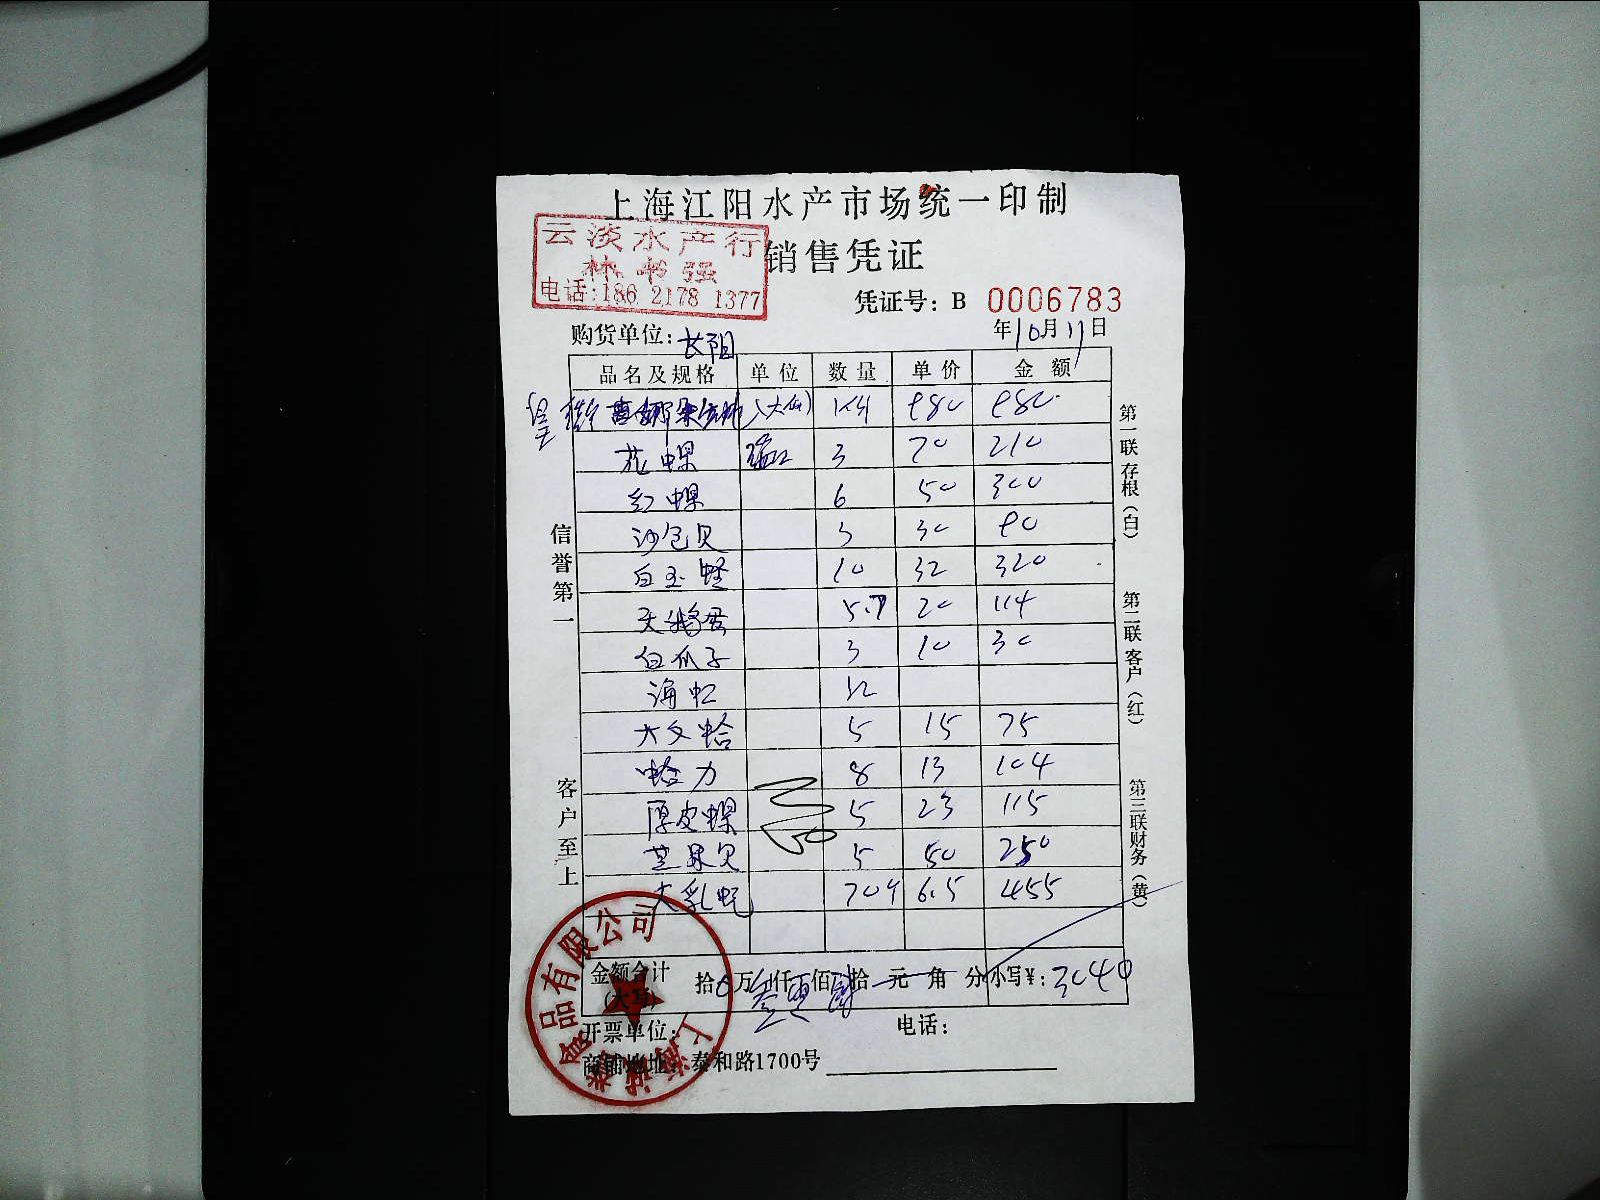 上海江阳水产市场统一印制
云淡水产行
林书强
电话:186 2178 1377
销售凭证
凭证号: B 0006783
购货单位: 长阳
年10月11日
品名及规格 单位 数量 单价 金额
980 980
花螺 3 70 210
红螺 6 50 300
沙包贝 3 30 90
白玉蛏 10 32 320
天鹅蛋 5.7 20 114
白瓜子 3 10 30
海虹 12
大文蛤 5 15 75
蛤力 8 13 104
厚皮螺 5 23 115
芒果贝 5 50 250
大乳蚝 70 6.5 455
金额合计
(大写)
拾0万叁仟0佰肆拾元角分 小写¥: 3040
开票单位:
电话:
商铺地址: 泰和路1700号
信誉第一
客户至上
第一联存根(白)
第二联客户(红)
第三联财务(黄)
品有限公司
上海